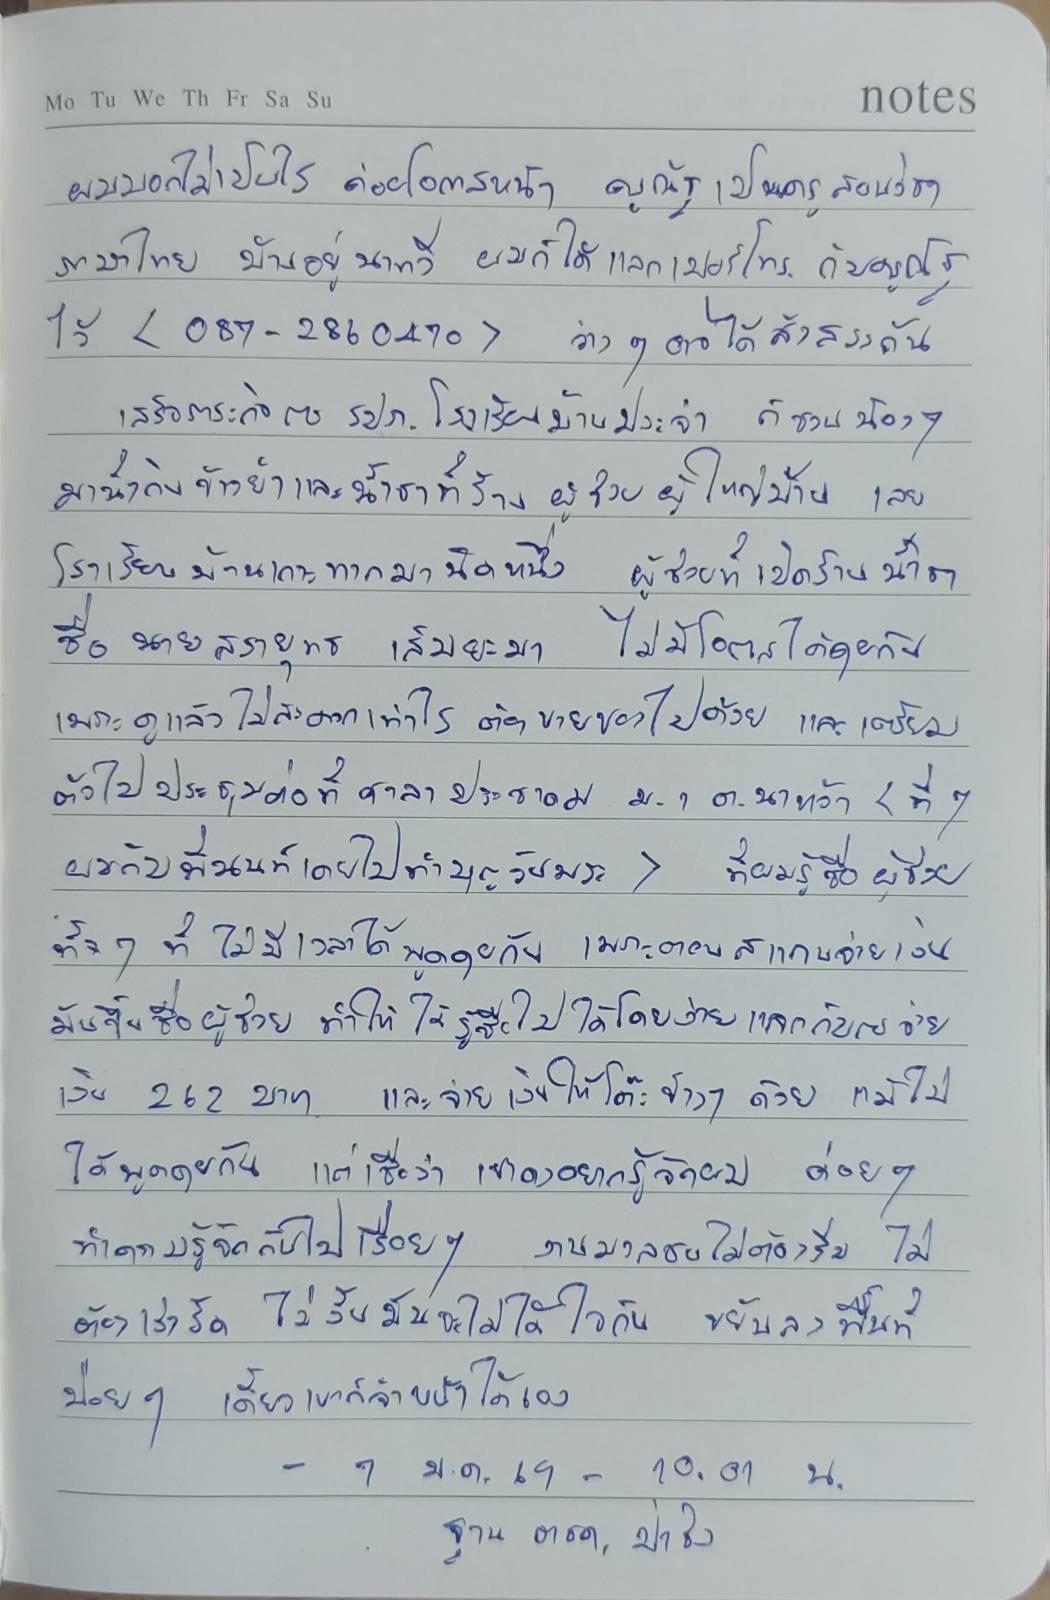 Mo Tu We Th Fr Sa Su
notes
ผมบอกไม่เป็นไร ค่อยโอกาสหน้า ครูณัฐ เป็นครูสอนวิชา
ภาษาไทย บ้านอยู่นาทวี ผมก็ได้แลกเบอร์โทร. กับครูณัฐ
ไว้ < 087-2860470 > ว่าง ๆ คงได้สังสรรกัน
เสร็จภาระกิจ รปภ. โรงเรียนบ้านประจ่า ก็ชวนน้องๆ
มานั่งกินข้าวยำและน้ำชาที่ร้าน ผู้ช่วยผู้ใหญ่บ้าน เลย
โรงเรียนบ้านเกาะทากมานิดหนึ่ง ผู้ช่วยที่เปิดร้านน้ำชา
ชื่อ นายสรายุทธ เส็มยะมา ไม่มีโอกาสได้คุยกัน
เพราะดูแล้วไม่สะดวกเท่าไร ติดขายของไปด้วย และเตรียม
ตัวไปประชุมต่อที่ศาลาประชาคม ม.1 ต.นาหว้า < ที่ๆ
ผมกับพี่นนท์เคยไปทำบุญวันพระ > ที่ผมรู้ชื่อผู้ช่วย
ทั้งๆ ที่ ไม่มีเวลาได้พูดคุยกัน เพราะตอนสแกนจ่ายเงิน
มันขึ้นชื่อผู้ช่วย ทำให้ได้รู้ชื่อไปได้โดยง่าย แลกกับจ่าย
เงิน 262 บาท และจ่ายเงินให้โต๊ะข้างๆ ด้วย แม้ไม่
ได้พูดคุยกัน แต่เชื่อว่า เขาคงอยากรู้จักผม ค่อยๆ
ทำความรู้จักกันไปเรื่อยๆ งานมวลชนไม่ต้องรีบ ไม่
ต้องเร่งรัด ไม่งั้นมันจะไม่ได้ใจกัน ขยันลงพื้นที่
บ่อยๆ เดี๋ยวเขาก็จำหน้าได้เอง
- 7 ม.ค. 69 - 10.01 น.
ฐาน ตชด. ป่าชิง